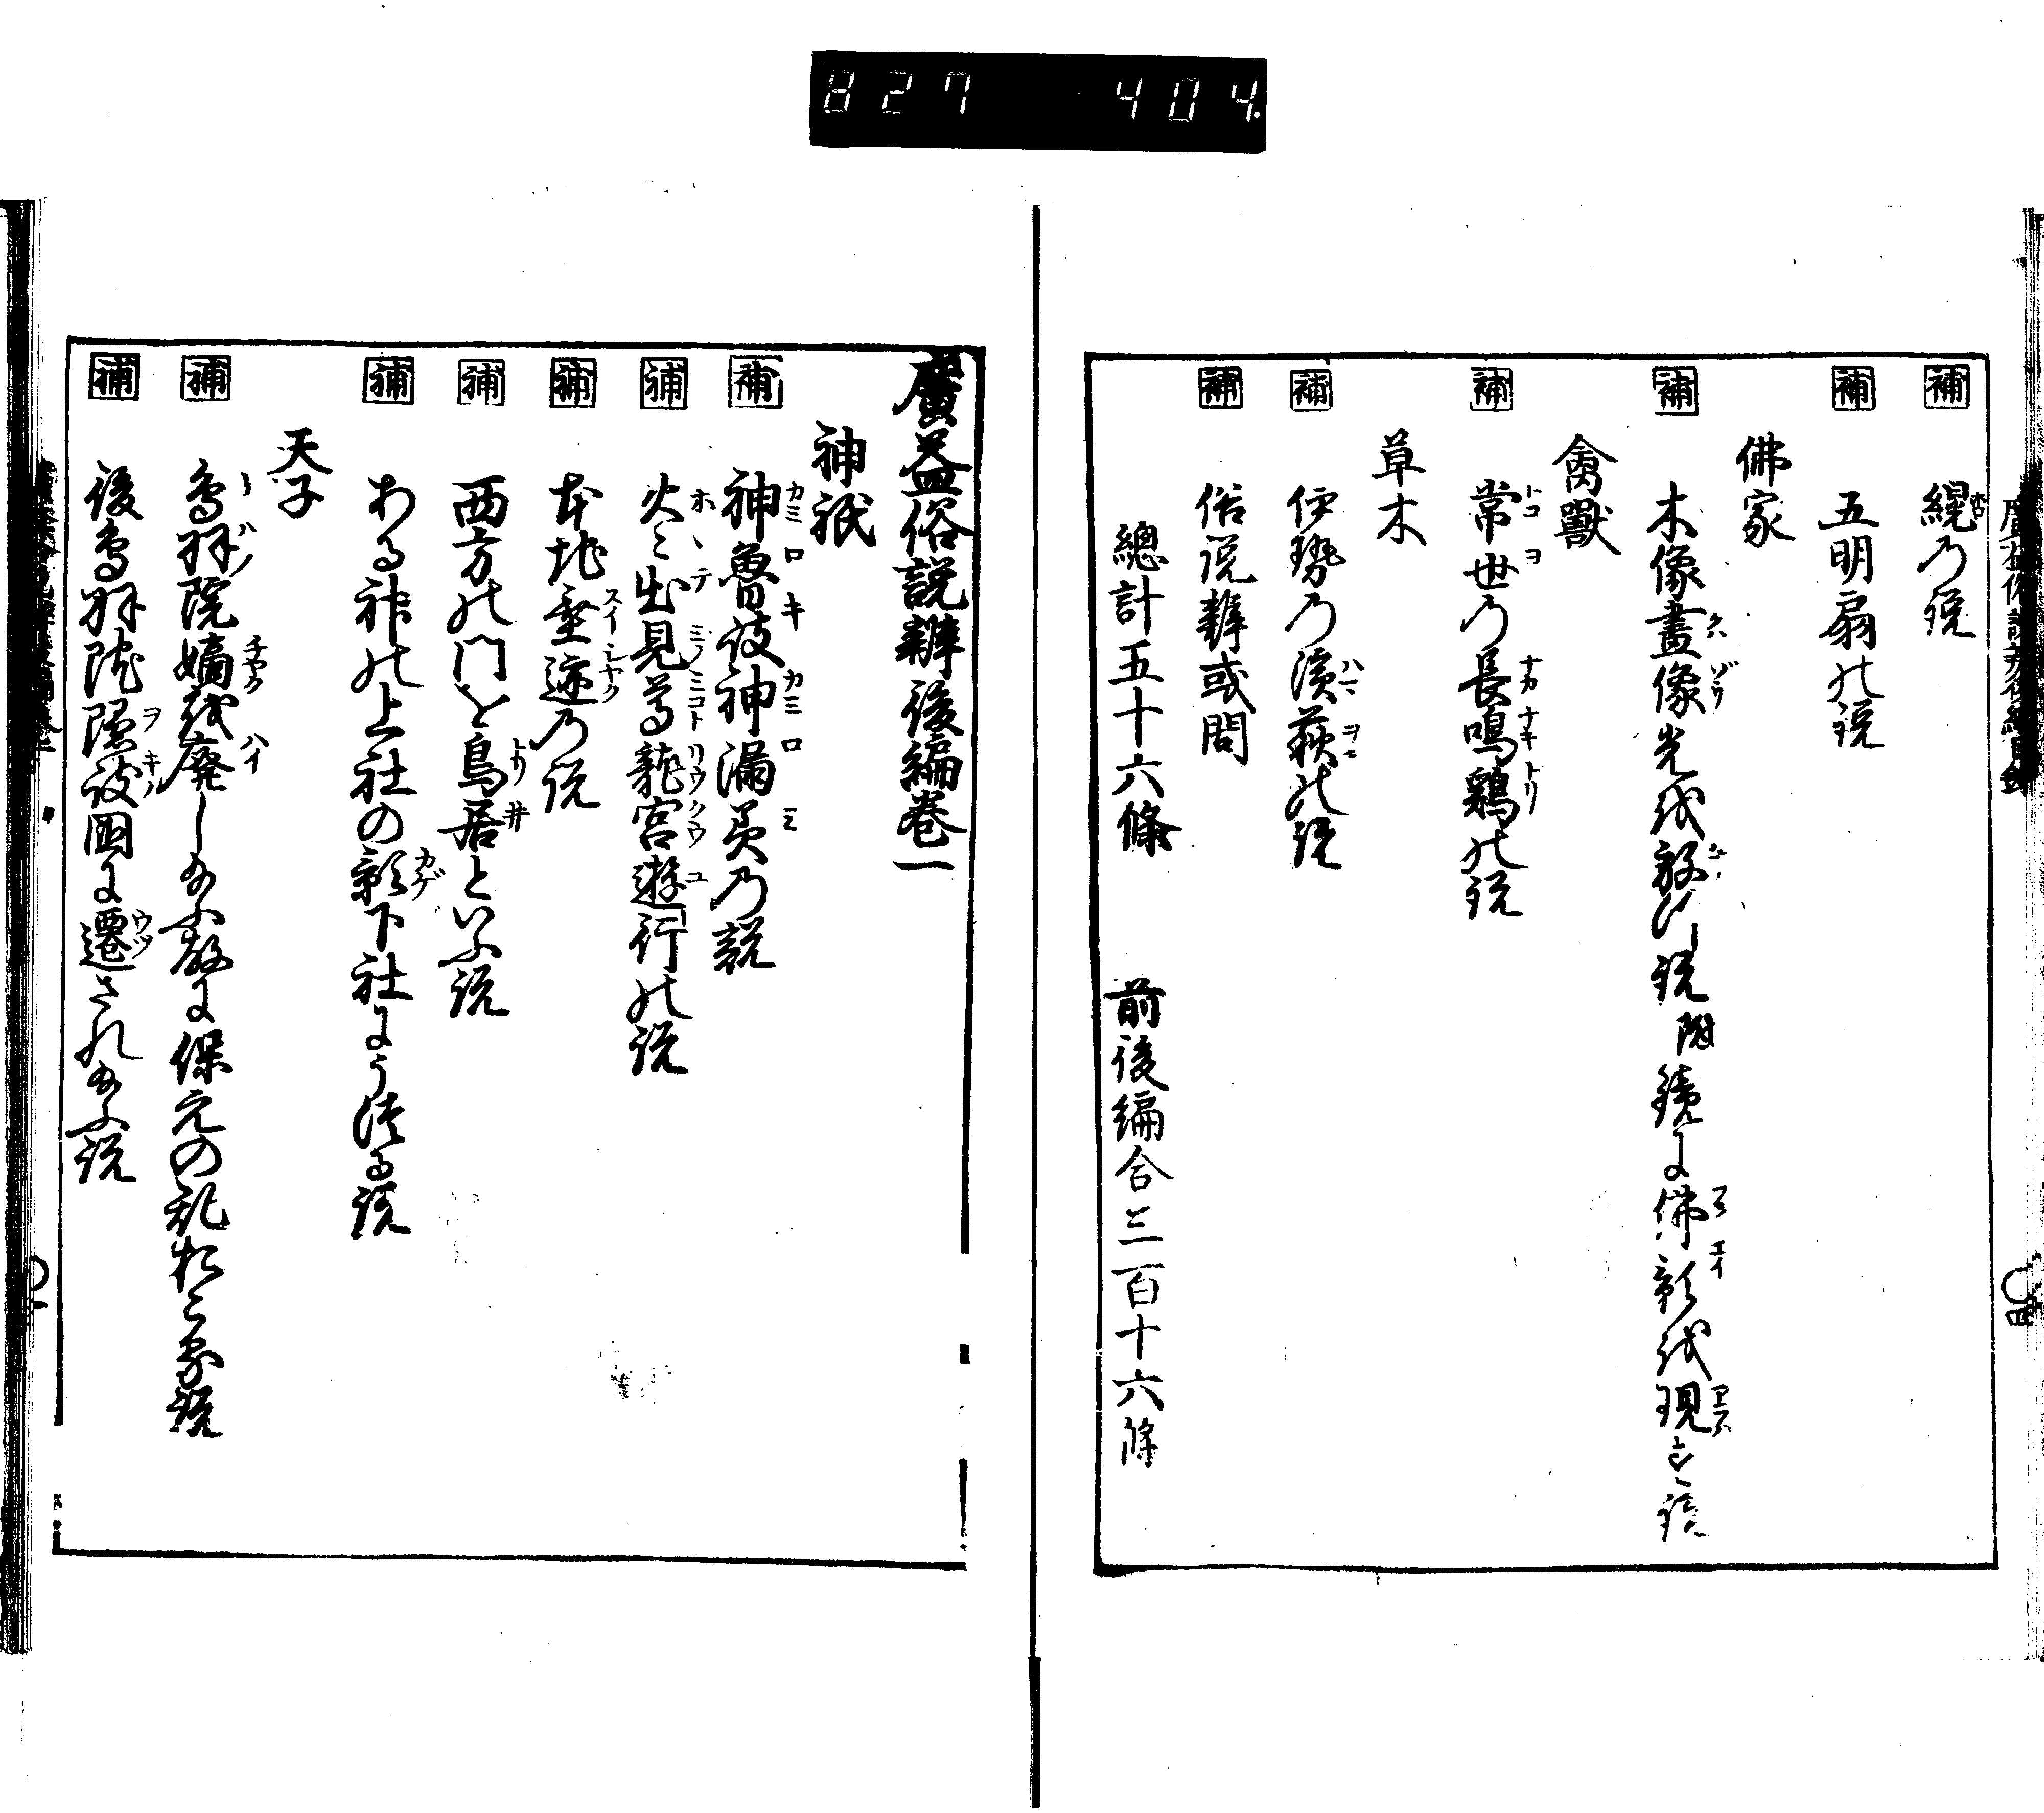 827 404.
補 幌乃説
補 五明扇の説
佛家
補 木像畫像光を放し説 附 鏡に佛影を現ずる説
禽獸
補 常世乃長鳴鷄の説
草木
補 伊勢乃濱荻の説
補 俗説辨或問
總計五十六條 前後編合三百十六條
廣益俗説辨後編巻一
神祇
補 神魯岐神漏美乃説
補 火々出見尊龍宮遊行の説
補 本地垂迹乃説
補 西方の門を鳥居といふ説
補 ある神の上社の影下社にうつる説
天子
補 鳥羽院嫡を廃し給ふ故に保元の乱おこる説
補 後鳥羽院隠岐国に遷され給ふ説